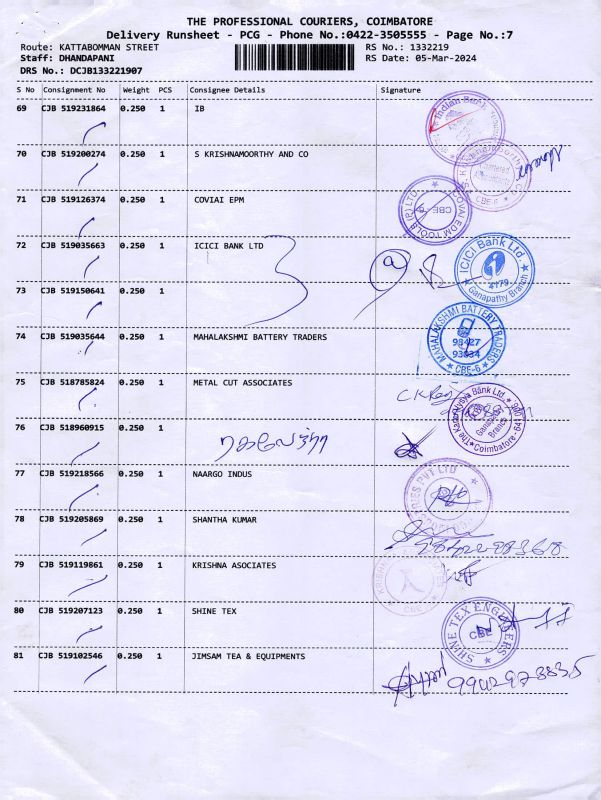 THE PROFESSIONAL COURIERS, COIMBATORE
Delivery Runsheet - PCG - Phone No.:0422-3505555 - Page No.:7
Route: KATTABOMMAN STREET RS No.: 1332219
Staff: DHANDAPANI RS Date: 05-Mar-2024
DRS No.: DCJB133221907
S No Consignment No Weight PCS Consignee Details Signature
69 CJB 519231864 0.250 1 IB
Indian Bank
70 CJB 519200274 0.250 1 S KRISHNAMOORTHY AND CO
CBE-6
71 CJB 519126374 0.250 1 COVIAI EPM
COVAI EDM TOOLS (P) LTD.
CBE-
72 CJB 519035663 0.250 1 ICICI BANK LTD
ICICI Bank Ltd.
4179
Ganapathy Branch
73 CJB 519150641 0.250 1
74 CJB 519035644 0.250 1 MAHALAKSHMI BATTERY TRADERS
MAHALAKSHMI BATTERY TRADERS
98427
93034
CBE-6
75 CJB 518785824 0.250 1 METAL CUT ASSOCIATES
The Karur Vysya Bank Ltd
Branch
Coimbatore-641 006
76 CJB 518960915 0.250 1
77 CJB 519218566 0.250 1 NAARGO INDUS
PVT LTD
78 CJB 519205869 0.250 1 SHANTHA KUMAR
79 CJB 519119861 0.250 1 KRISHNA ASOCIATES
80 CJB 519207123 0.250 1 SHINE TEX
SHINE TEX ENGINEERS
CBE
81 CJB 519102546 0.250 1 JIMSAM TEA & EQUIPMENTS